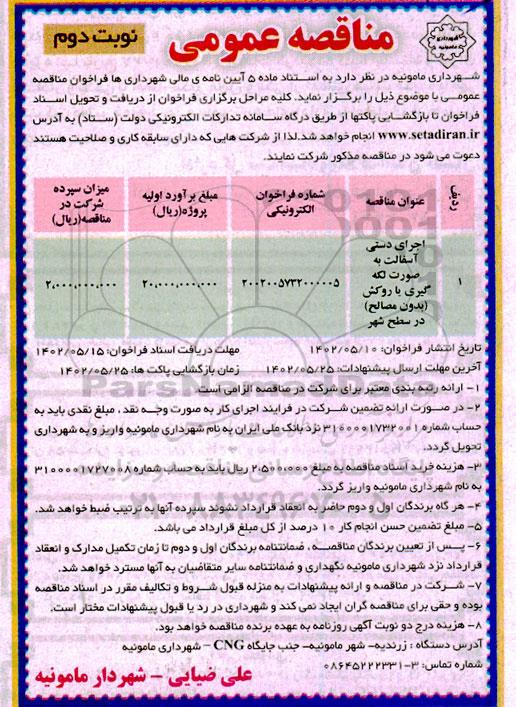 شهرداری مامونیه
مناقصه عمومی
نوبت دوم
شهرداری مامونیه در نظر دارد به استناد ماده ۵ آیین نامه ی مالی شهرداری ها فراخوان مناقصه
عمومی با موضوع ذیل را برگزار نماید. کلیه مراحل برگزاری فراخوان از دریافت و تحویل اسناد
فراخوان تا بازگشایی پاکتها از طریق درگاه سامانه تدارکات الکترونیکی دولت (ستاد) به آدرس
www.setadiran.ir انجام خواهد شد.لذا از شرکت هایی که دارای سابقه کاری و صلاحیت هستند
دعوت می شود در مناقصه مذکور شرکت نمایند.
ردیف
عنوان مناقصه
شماره فراخوان
الکترونیکی
مبلغ برآورد اولیه
پروژه(ریال)
میزان سپرده
شرکت در
مناقصه(ریال)
۱
اجرای دستی
آسفالت به
صورت لکه
گیری یا روکش
(بدون مصالح)
در سطح شهر
۲۰۰۲۰۰۵۷۳۲۰۰۰۰۰۵
۲۰,۰۰۰,۰۰۰,۰۰۰
۲,۰۰۰,۰۰۰,۰۰۰
تاریخ انتشار فراخوان: ۱۴۰۲/۰۵/۱۰ مهلت دریافت اسناد فراخوان: ۱۴۰۲/۰۵/۱۵
آخرین مهلت ارسال پیشنهادات: ۱۴۰۲/۰۵/۲۵ زمان بازگشایی پاکت ها: ۱۴۰۲/۰۵/۲۵
۱- ارائه رتبه بندی معتبر برای شرکت در مناقصه الزامی است.
۲- در صورت ارائه تضمین شرکت در فرایند اجرای کار به صورت وجه نقد ، مبلغ نقدی باید به
حساب شماره ۳۱۰۰۰۰۱۷۳۲۰۰۱ نزد بانک ملی ایران به نام شهرداری مامونیه واریز و به شهرداری
تحویل گردد.
۳- هزینه خرید اسناد مناقصه به مبلغ ۲،۵۰۰،۰۰۰ ریال باید به حساب شماره ۳۱۰۰۰۰۱۷۲۷۰۰۸
به نام شهرداری مامونیه واریز گردد.
۴- هر گاه برندگان اول و دوم حاضر به انعقاد قرارداد نشوند سپرده آنها به ترتیب ضبط خواهد شد.
۵- مبلغ تضمین حسن انجام کار ۱۰ درصد از کل مبلغ قرارداد می باشد.
۶- پس از تعیین برندگان مناقصه، ضمانتنامه برندگان اول و دوم تا زمان تکمیل مدارک و انعقاد
قرارداد نزد شهرداری مامونیه نگهداری و ضمانتنامه سایر متقاضیان به آنها مسترد خواهد شد.
۷- شرکت در مناقصه و ارائه پیشنهادات به منزله قبول شروط و تکالیف مقرر در اسناد مناقصه
بوده و حقی برای مناقصه گران ایجاد نمی کند و شهرداری در رد یا قبول پیشنهادات مختار است.
۸- هزینه درج دو نوبت آگهی روزنامه به عهده برنده مناقصه خواهد بود.
آدرس دستگاه : زرندیه- شهر مامونیه- جنب جایگاه CNG – شهرداری مامونیه
شماره تماس: ۳-۰۸۶۴۵۲۲۲۳۳۱
علی ضیایی - شهردار مامونیه